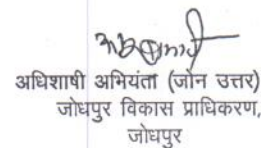 अधिशाषी अभियंता (जोन उत्तर)
जोधपुर विकास प्राधिकरण,
जोधपुर